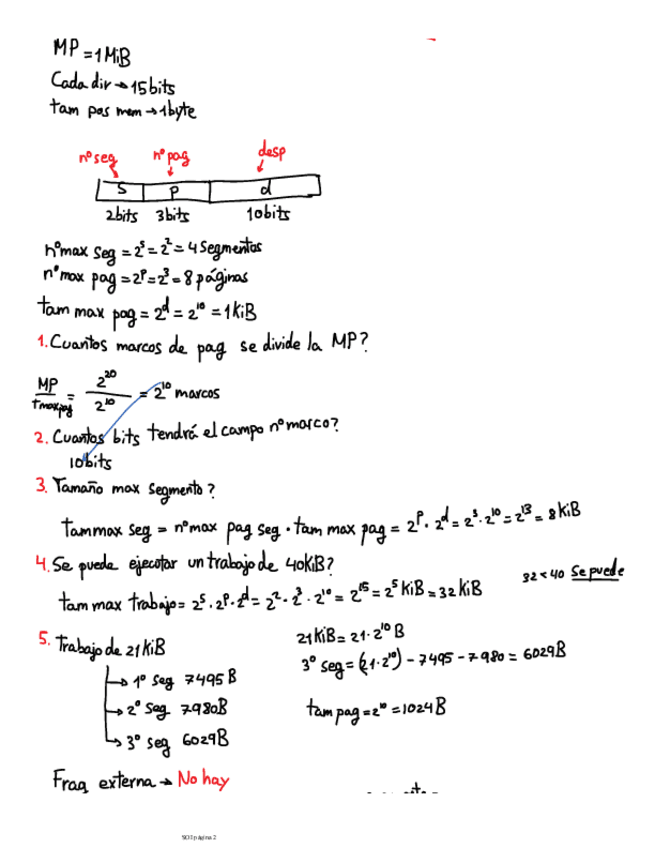 MP = 1MiB
Cada dir → 15 bits
tam pos mem → 1byte
nº seg nº pag desp
S p d
2bits 3bits 10bits
nº max seg = 2^s = 2^2 = 4 Segmentos
nº max pag = 2^p = 2^3 = 8 páginas
tam max pag = 2^d = 2^10 = 1KiB
1. Cuantos marcos de pag se divide la MP?
MP / tmaxpag = 2^20 / 2^10 = 2^10 marcos
2. Cuantos bits tendrá el campo nº marco?
10bits
3. Tamaño max segmento?
tam max seg = nº max pag seg · tam max pag = 2^p · 2^d = 2^3 · 2^10 = 2^13 = 8KiB
4. Se puede ejecutar un trabajo de 40KiB?
32 < 40 Se puede
tam max trabajo = 2^s · 2^p · 2^d = 2^2 · 2^3 · 2^10 = 2^15 = 2^5 KiB = 32 KiB
5. Trabajo de 21KiB
21KiB = 21 · 2^10 B
→ 1º seg 7495 B
3º seg = (21 · 2^10) - 7495 - 7980 = 6029B
→ 2º seg 7980B
tam pag = 2^10 = 1024B
→ 3º seg 6029B
Frag externa → No hay
SO1 página 2